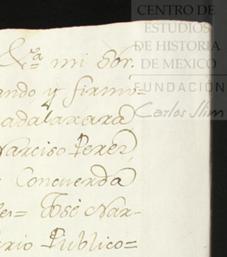 CENTRO DE
ESTUDIOS
DE HISTORIA
DE MÉXICO
FUNDACIÓN
Carlos Slim
&ra. mi Sor.
ando y firmis-
adalaxara
Narciso Perez
Concuerda
Jose Nar-
rio Publico=